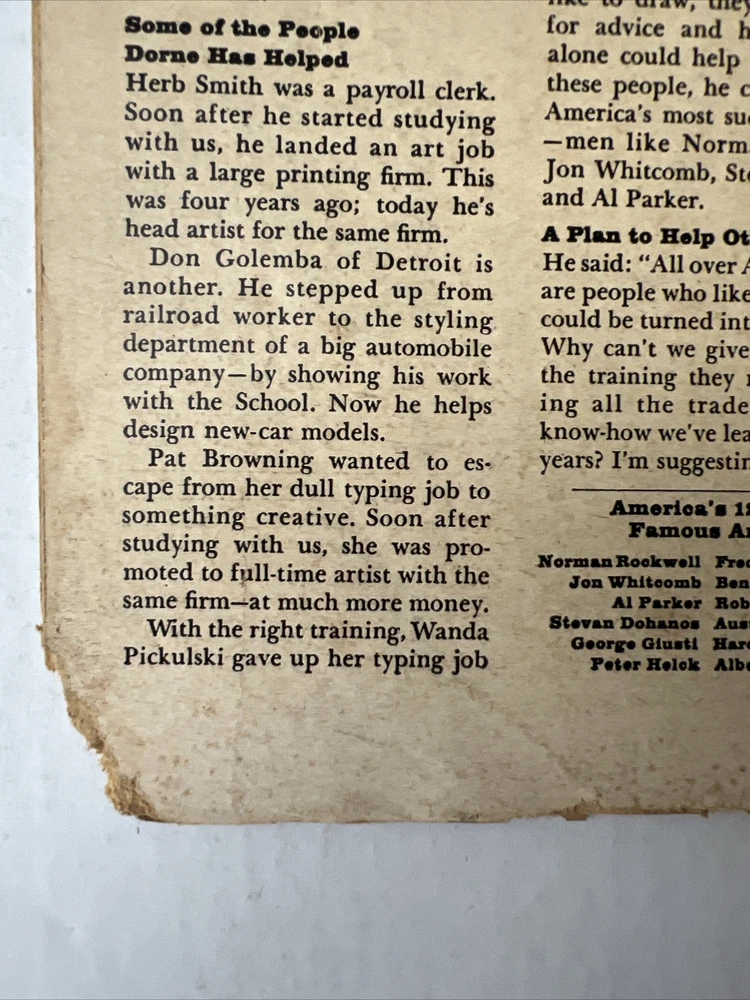 Some of the People
Dorne Has Helped
Herb Smith was a payroll clerk.
Soon after he started studying
with us, he landed an art job
with a large printing firm. This
was four years ago; today he's
head artist for the same firm.
Don Golemba of Detroit is
another. He stepped up from
railroad worker to the styling
department of a big automobile
company—by showing his work
with the School. Now he helps
design new-car models.
Pat Browning wanted to es-
cape from her dull typing job to
something creative. Soon after
studying with us, she was pro-
moted to full-time artist with the
same firm—at much more money.
With the right training, Wanda
Pickulski gave up her typing job
like to draw, they
for advice and h
alone could help
these people, he c
America's most su
—men like Norm
Jon Whitcomb, Ste
and Al Parker.
A Plan to Help Ot
He said: "All over A
are people who like
could be turned int
Why can't we give
the training they
ing all the trade
know-how we've lea
years? I'm suggestin
America's 12
Famous Ar
Norman Rockwell Fred
Jon Whitcomb Ben
Al Parker Rob
Stevan Dohanos Aus
George Giusti Haro
Peter Helck Albe